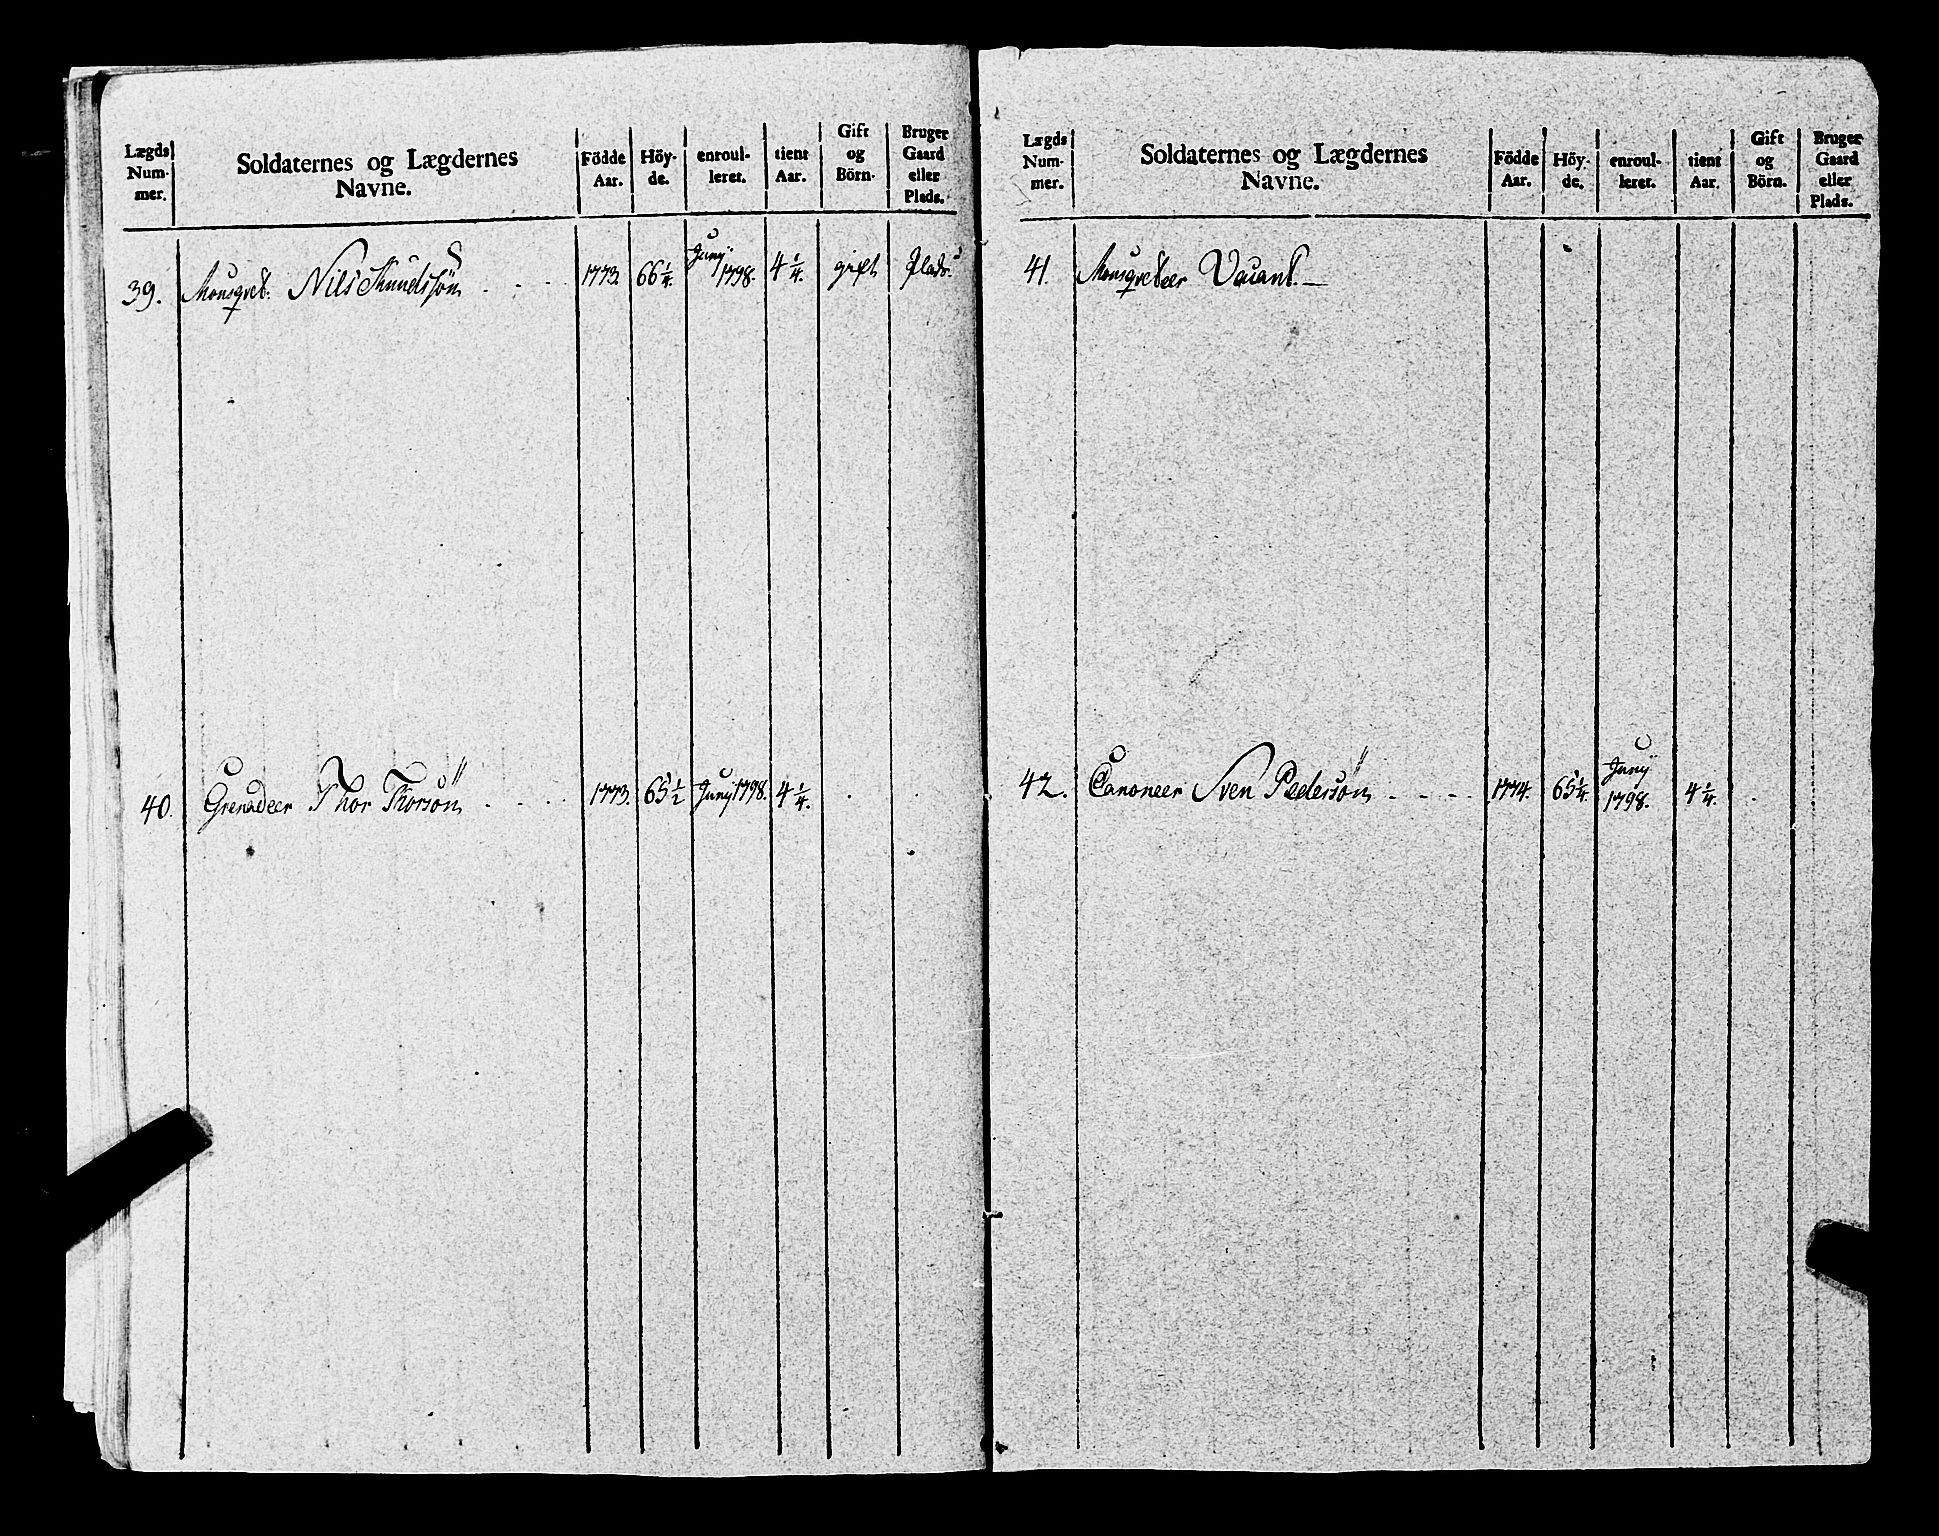 Lægds Num- mer. | Soldaternes og Lægdernes Navne. | Födde Aar. | Höy- de. | enroul- leret. | tient Aar. | Gift og Börn. | Bruger Gaard eller Plads.
39. Mousqvet. Nils Knudssön . . . . 1773. 66 1/4. Junÿ 1798. 4 1/4. gift Plads.
40. Grenadeer Thor Thorsön . . . . 1773. 65 1/2 Junÿ 1798. 4 1/4. . .
Lægds Num- mer. | Soldaternes og Lægdernes Navne. | Födde Aar. | Höy- de. | enroul- leret. | tient Aar. | Gift og Börn. | Bruger Gaard eller Plads.
41. Mousqveteer Vacant. —
42. Canoneer Sven Pedersön - - - - 1774. 65 1/4. Junÿ 1798. 4 1/4. .